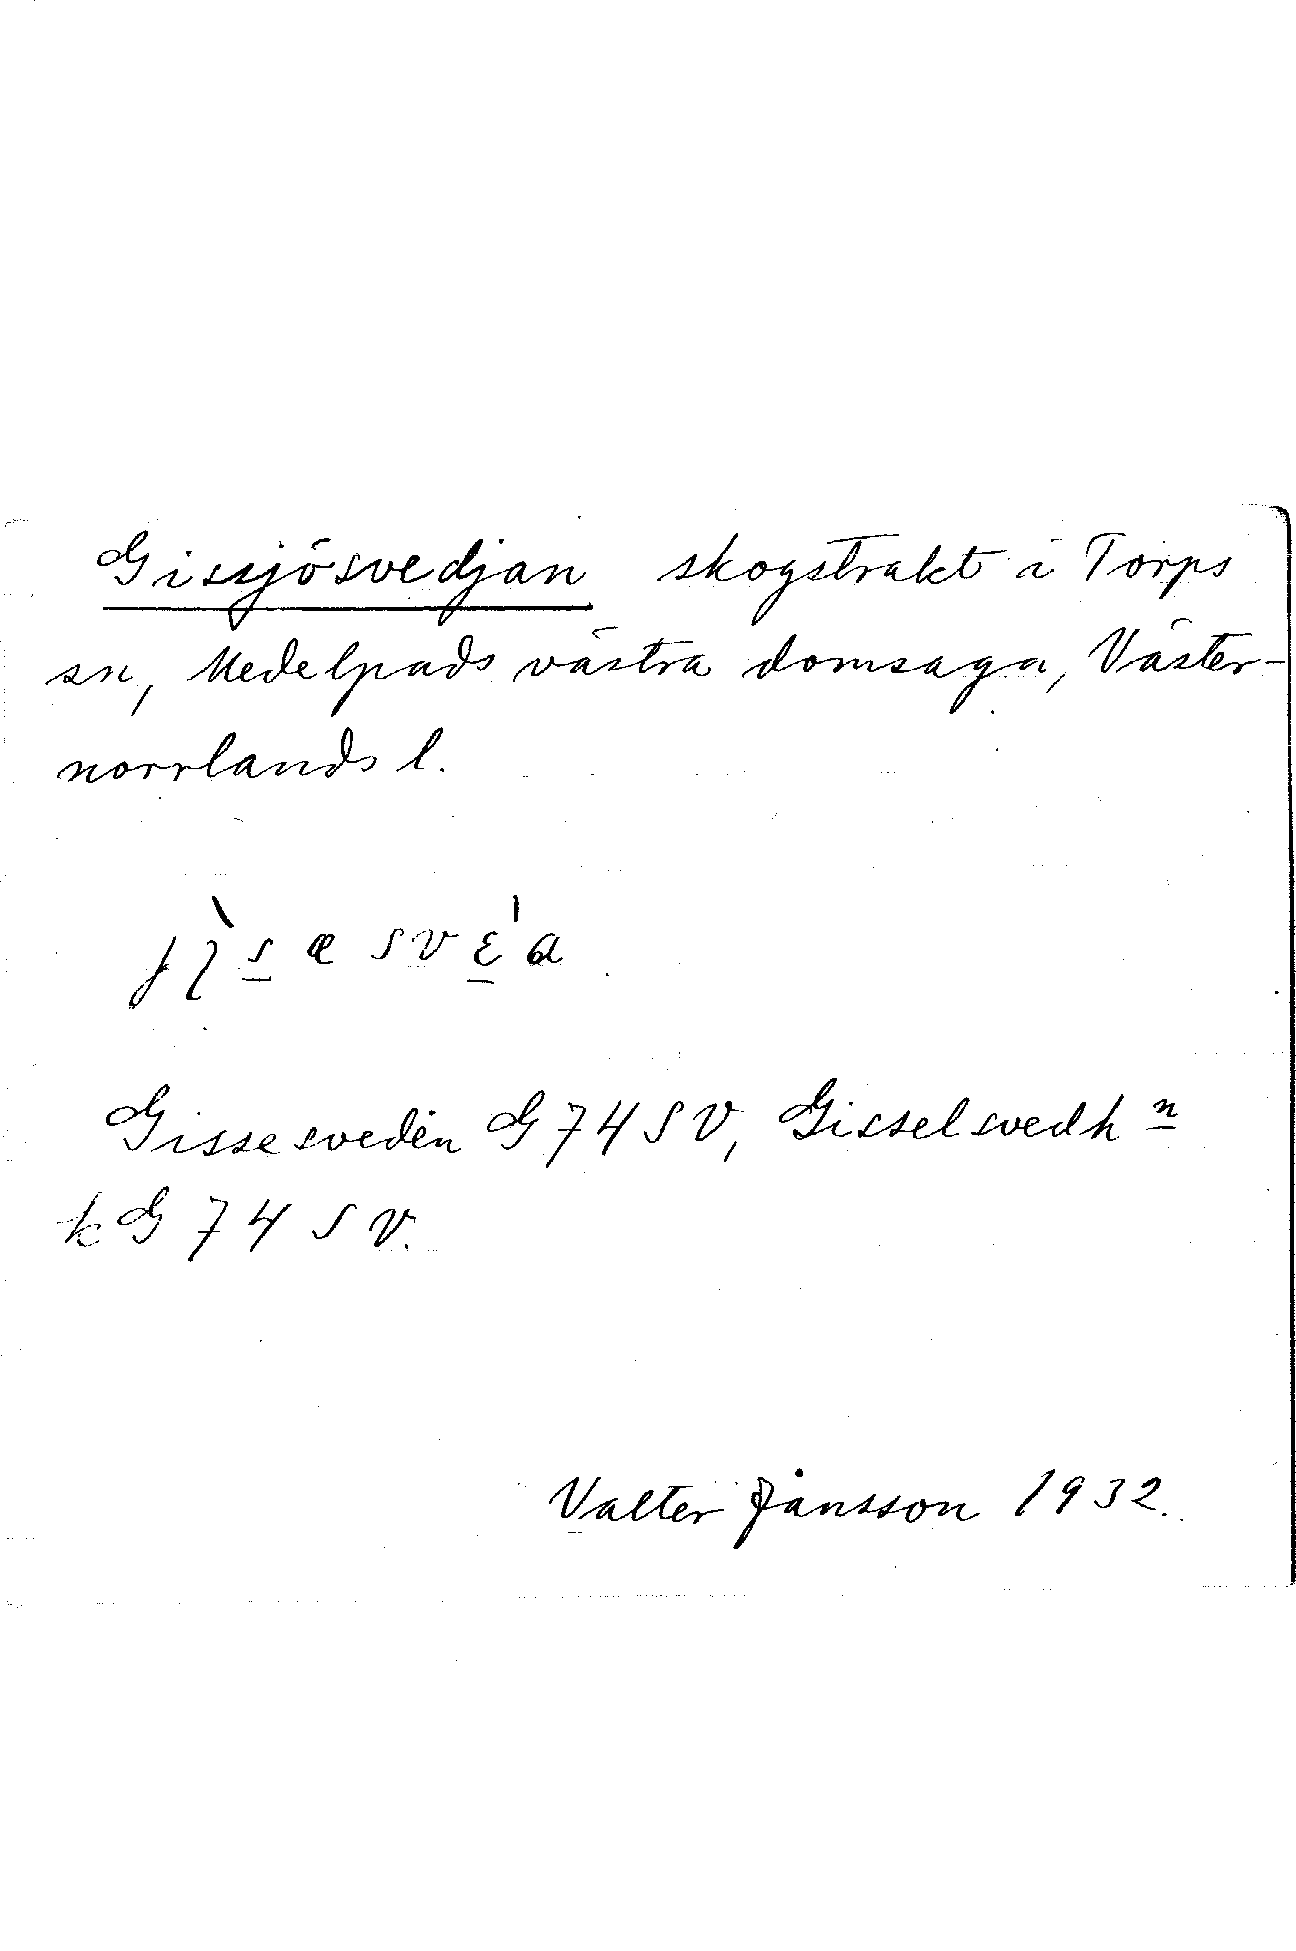 Gissjösvedjan skogstrakt i Torps
sn, Medelpads västra domsaga, Väster-
norrlands l.
Gissesveden G 74 SV, Gisselsvedhn
kG 74 SV.
Valter Jansson 1932.